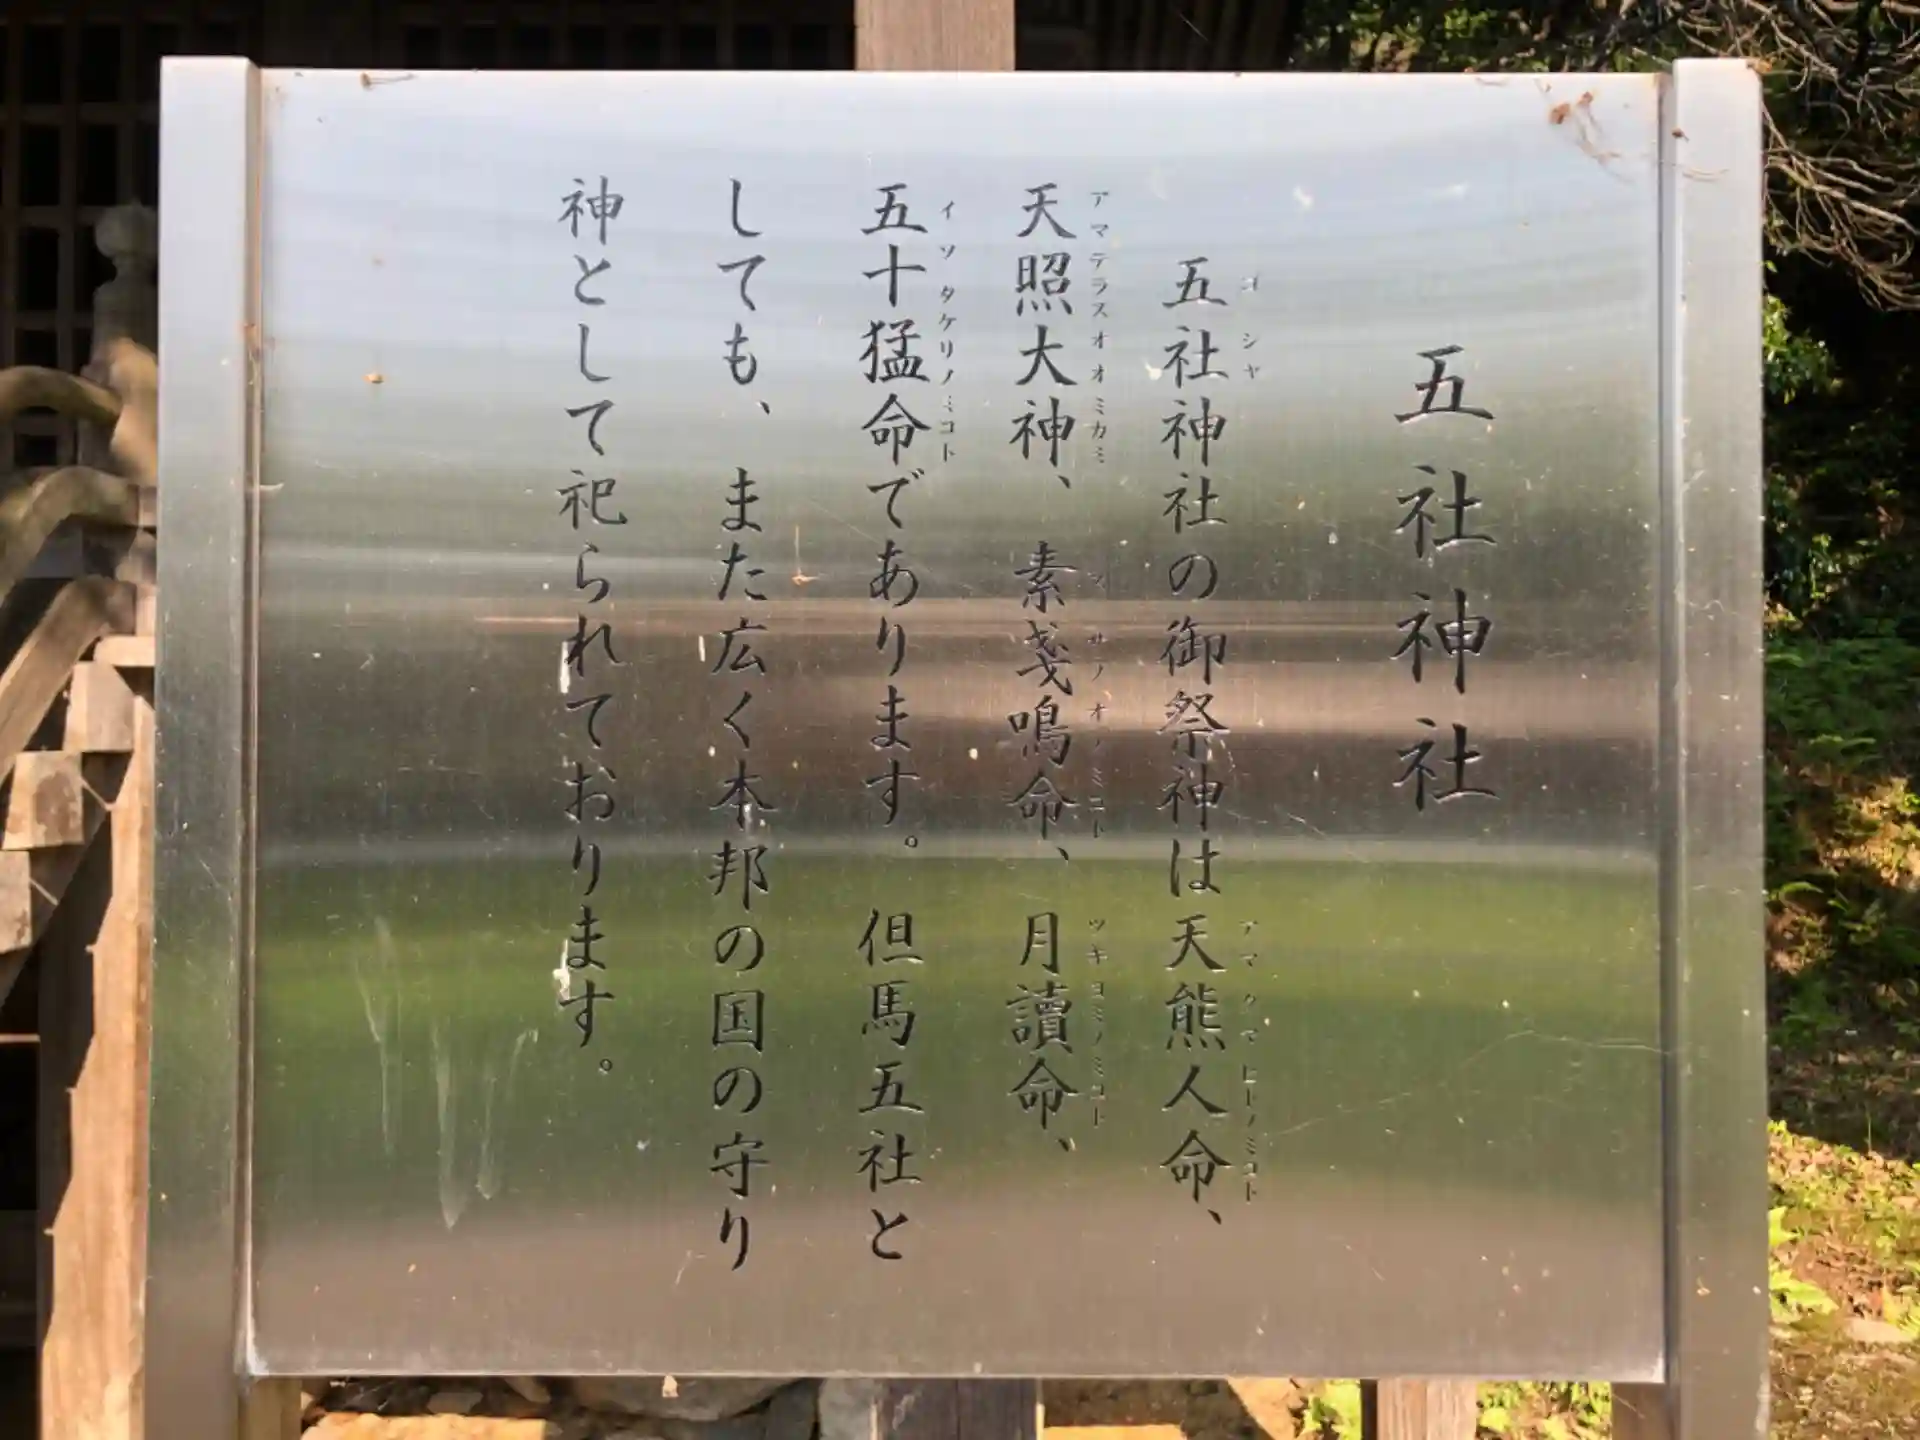 五社神社
五社神社の御祭神は天熊人命、
ゴシヤ アマクマヒトノミコト
天照大神、素戔鳴命、月讀命、
アマテラスオオミカミ スサノオノミコト ツキヨミノミコト
五十猛命であります。但馬五社と
イソタケリノミコト
しても、また広く本邦の国の守り
神として祀られております。